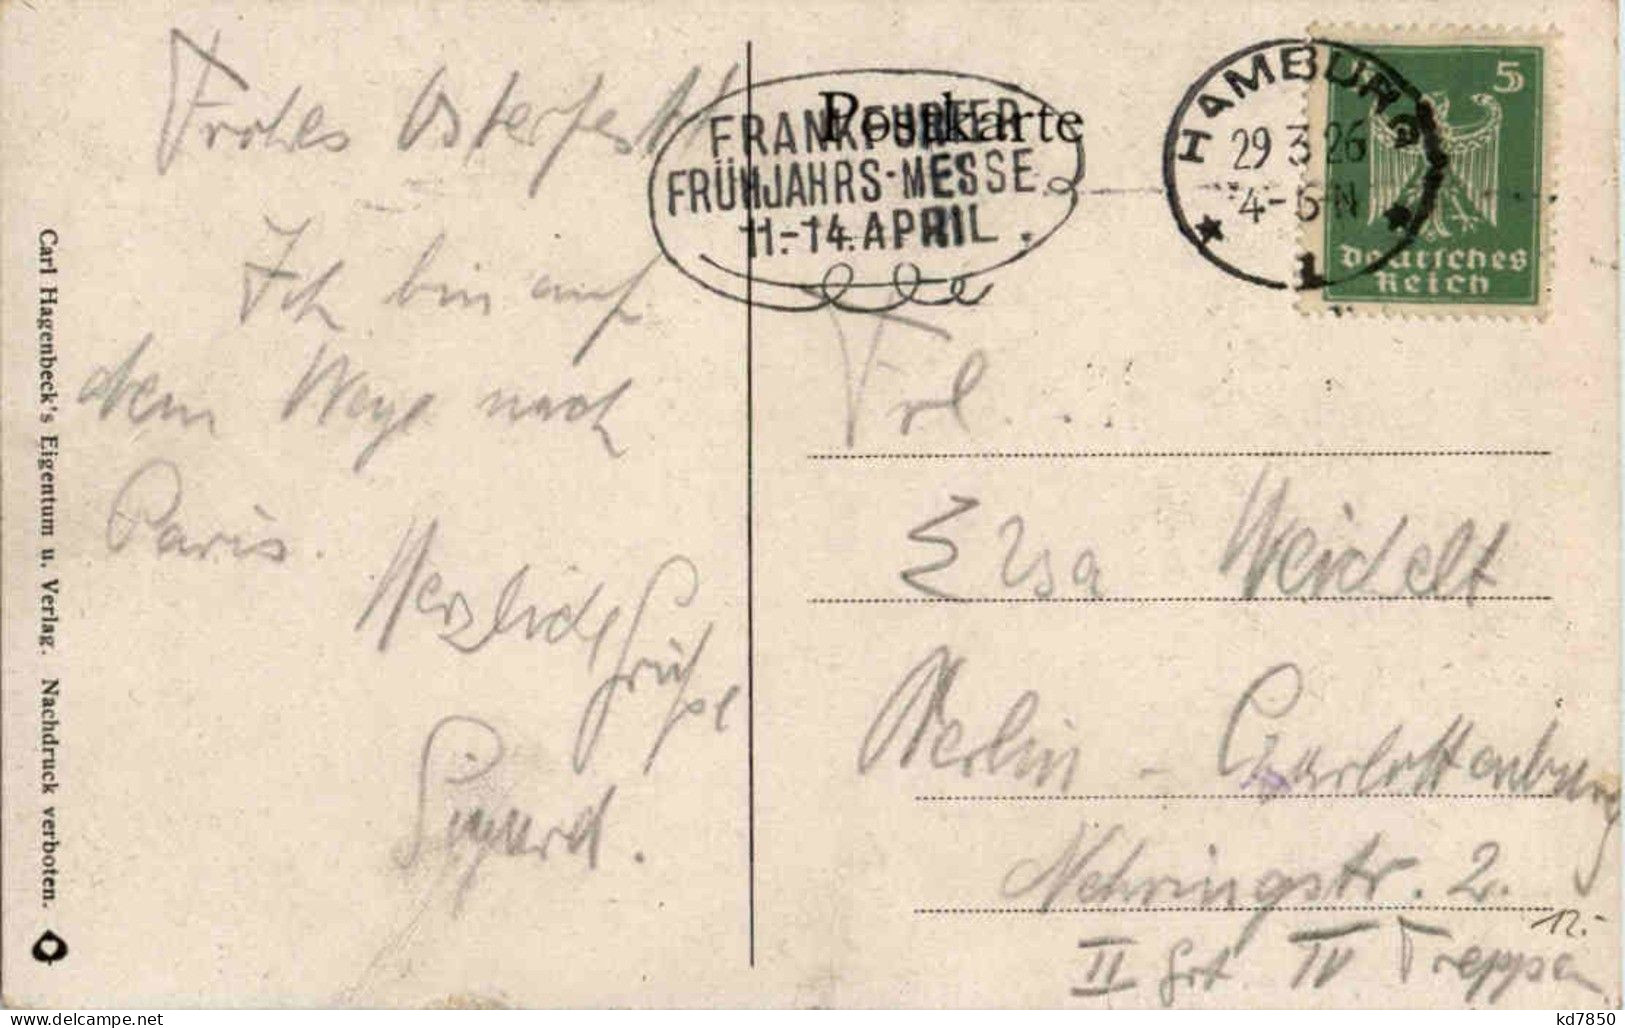 Postkarte
FRANKFURTER
FRÜHJAHRS-MESSE
11.-14. APRIL.
HAMBURG
29 3 26
4-5 N
1
5
Deutsches
Reich
Frohes Osterfest!
Ich bin auf
dem Wege nach
Paris.
Herzliche
Grüße
Sigurd.
Frl.
Elsa Weidelt
Berlin - Charlottenburg
Nehringstr. 2.
II Grt IV Treppen
12.-
Carl Hagenbeck's Eigentum u. Verlag. Nachdruck verboten.
kd7850